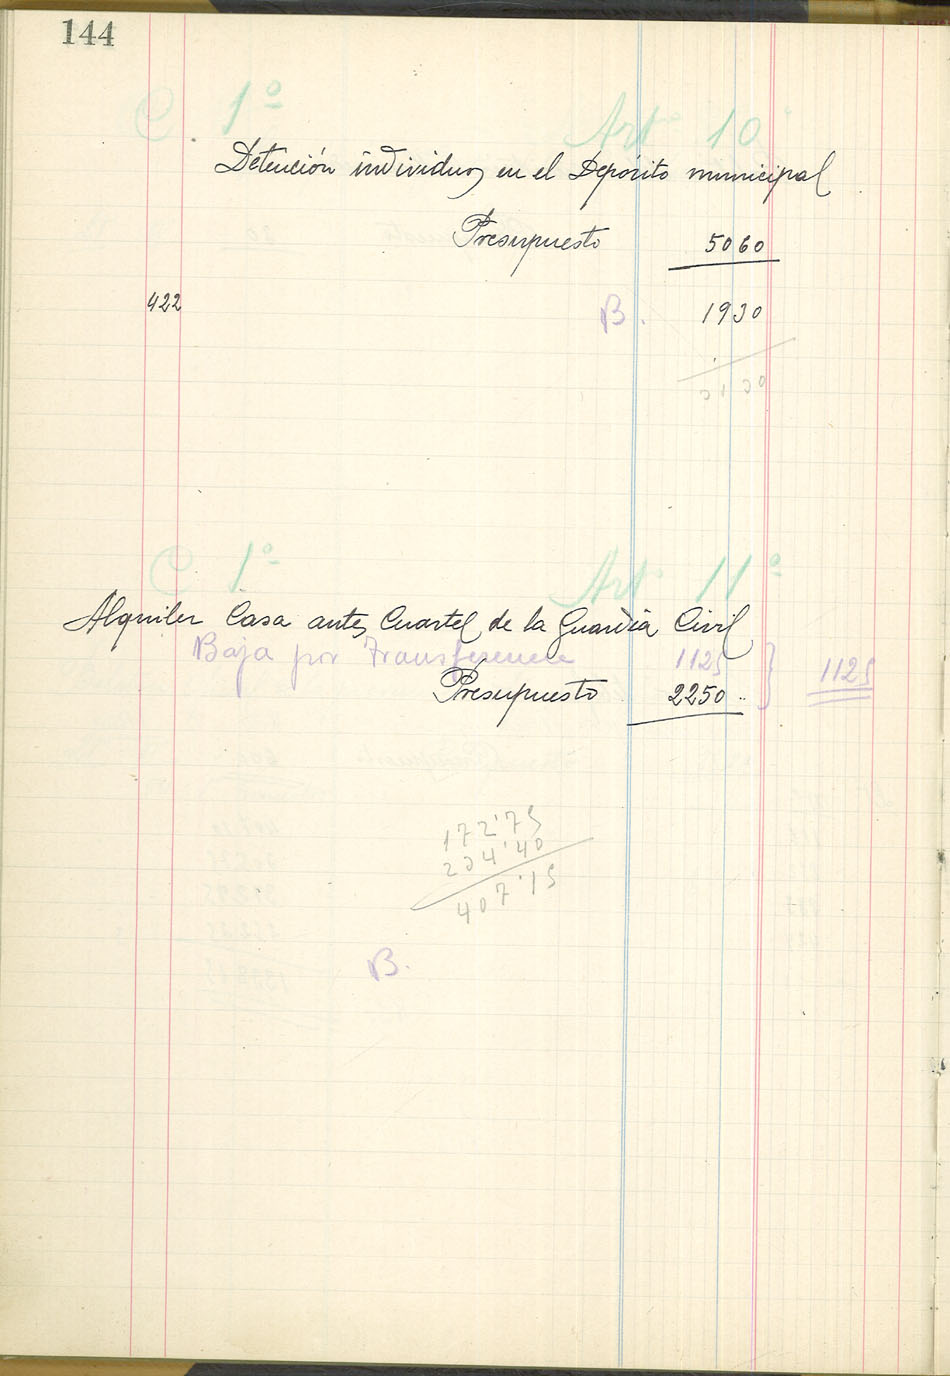 144
C 1º Art 10º
Detención individuos en el Depósito municipal
Presupuesto 5060
422 B. 1930
3130
C 1º Art 11º
Alquiler Casa antes Cuartel de la Guardia Civil
Baja por Transferencia 1125 } 1125
Presupuesto 2250
172'75
234'40
407'15
B.